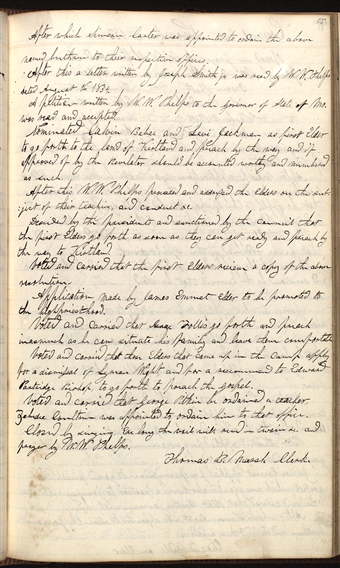 After which Simeon Carter was appointed to ordain the above
named brethren to their respective offices.
After this a letter written by Joseph Smith jr was read by W. W. Phelps
dated August 16 1834
A petition written by W. W. Phelps to the governor of State of Mo.
was read and accepted
Nominated Calvin Bebee and Levi Jackman as first Elder
to go forth to the land of Kirtland and preach by the way and if
approved of by the Revelator should be accounted worthy and numbered
as such.
After this W. W. Phelps proceeded and addressed the Elders on the sub-
:ject of their teaching, and conduct &c.
Decided by the presidents and sanctioned by the Council that
the first Elders go forth as soon as they can get ready and preach by
the way to Kirtland
Voted and carried that the first Elders receive a copy of the above
resolution.
Application made by James Emmet Elder to be promoted to
the high priesthood.
Voted and carried that Isaac go forth and preach
inasmuch as he can situate his family and leave them comfortable
Voted and carried that those Elders that came up in the Camp apply
for a dismissal of Lyman Wight and for a recommend to Edward
Partridge Bishop to go forth to preach the gospel.
Voted and carried that George be ordained a teacher.
Zebedee Coultrin was appointed to ordain him to that office.
Closed by singing, Ere long the vail will rend in twain &c. and
prayer by W. W. Phelps.
Thomas B. Marsh Clerk.